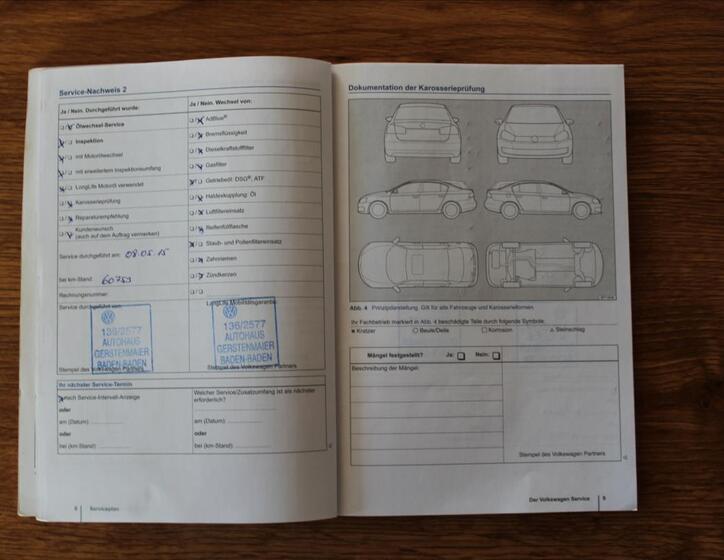 Service-Nachweis 2
Ja / Nein. Durchgeführt wurde:
Ölwechsel-Service
Inspektion
mit Motorölwechsel
mit erweitertem Inspektionsumfang
LongLife Motoröl verwendet
Karosserieprüfung
Reparaturempfehlung
Kundenwunsch
(auch auf dem Auftrag vermerken)
Service durchgeführt am: 08.05.15
bei km-Stand: 60753
Rechnungsnummer:
Service durchgeführt von:
136/2577
AUTOHAUS
GERSTENMAIER
BADEN-BADEN
Stempel des Volkswagen Partners
Ja / Nein. Wechsel von:
AdBlue®
Bremsflüssigkeit
Dieselkraftstofffilter
Gasfilter
Getriebeöl: DSG®, ATF
Haldexkupplung: Öl
Luftfiltereinsatz
Reifenfüllflasche
Staub- und Pollenfiltereinsatz
Zahnriemen
Zündkerzen
LongLife Mobilitätsgarantie
136/2577
AUTOHAUS
GERSTENMAIER
BADEN-BADEN
Stempel des Volkswagen Partners
Ihr nächster Service-Termin
nach Service-Intervall-Anzeige
oder
am (Datum):
oder
bei (km-Stand):
Welcher Service/Zusatzumfang ist als nächster
erforderlich?
am (Datum):
oder
bei (km-Stand):
8 Serviceplan
Dokumentation der Karosserieprüfung
Abb. 4 Prinzipdarstellung. Gilt für alle Fahrzeuge und Karosserieformen.
Ihr Fachbetrieb markiert in Abb. 4 beschädigte Teile durch folgende Symbole:
Kratzer Beule/Delle Korrosion Steinschlag
Mängel festgestellt? Ja: Nein:
Beschreibung der Mängel:
Stempel des Volkswagen Partners
Der Volkswagen Service 9